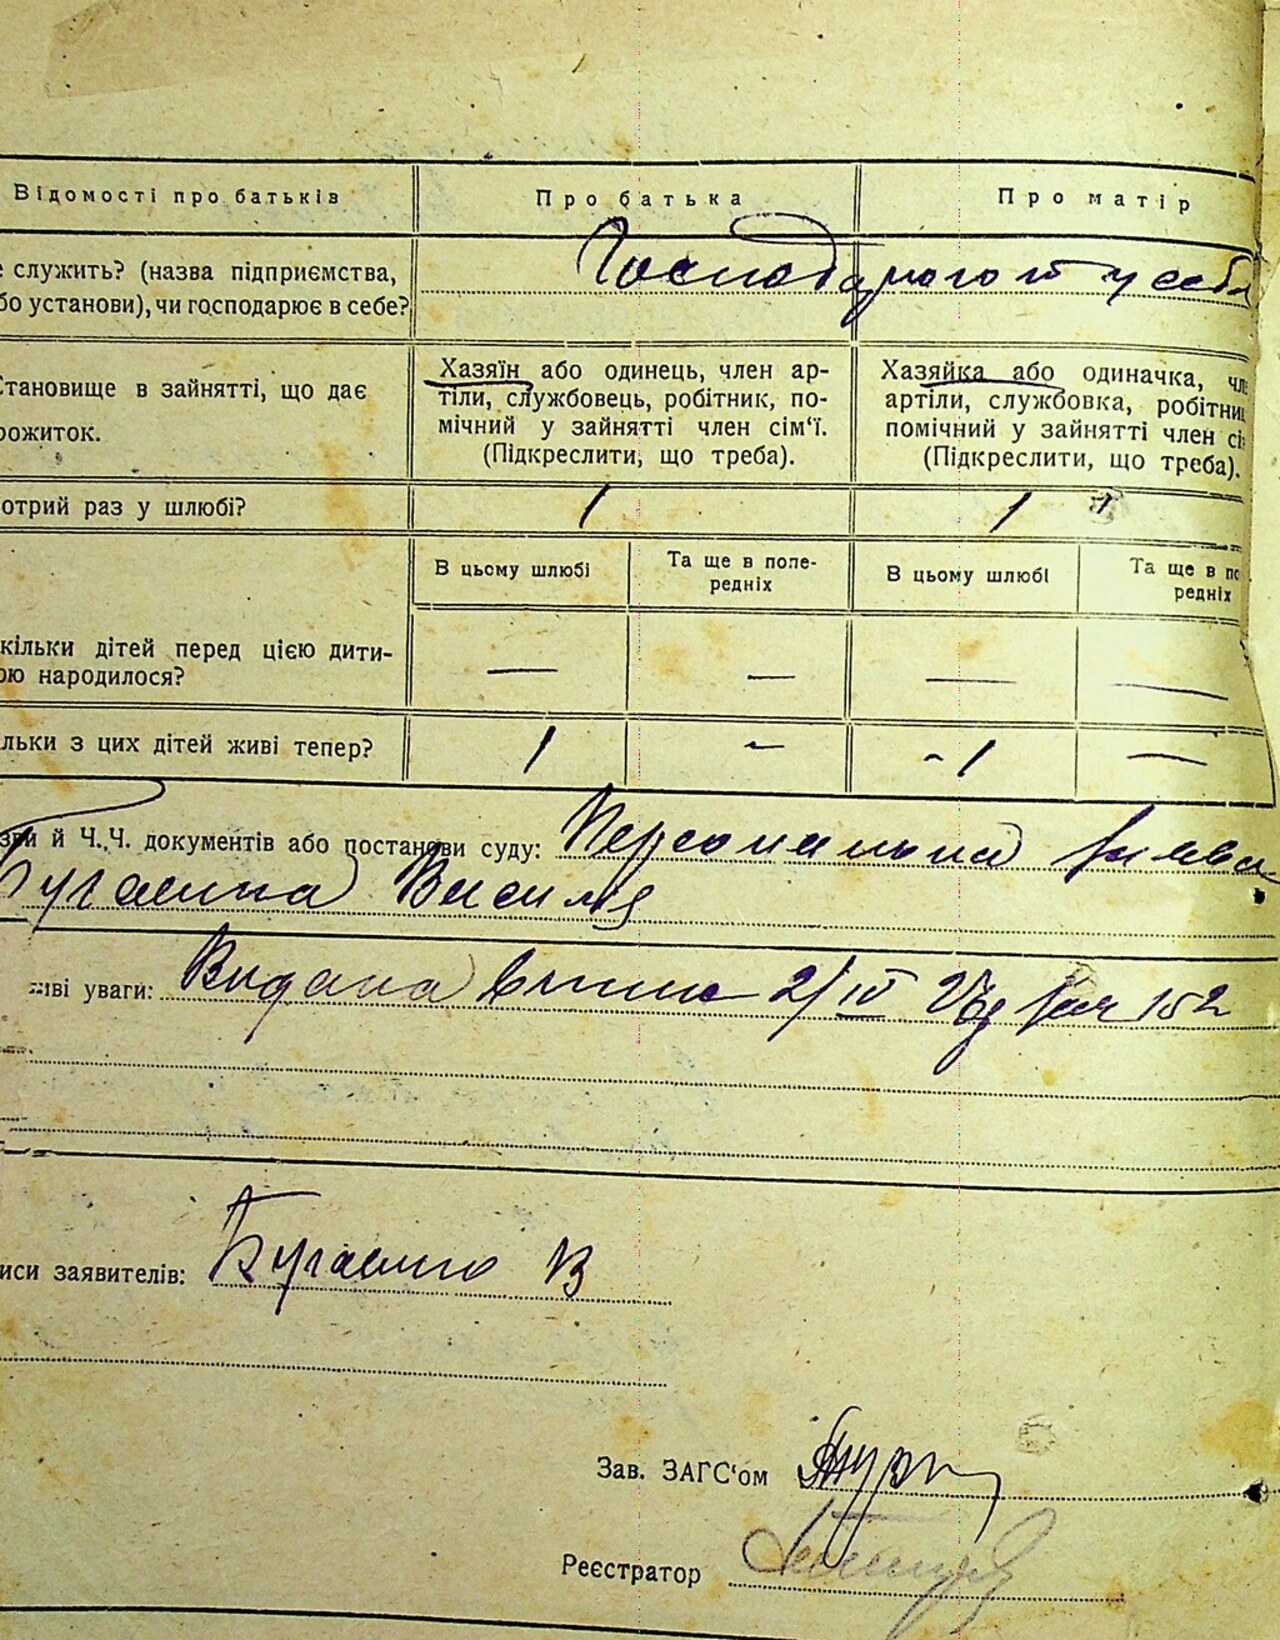 Відомості про батьків
Про батька
Про матір
служить? (назва підприємства,
бо установи), чи господарює в себе?
у себе
Становище в зайнятті, що дає
рожиток.
Хазяїн або одинець, член ар-
тіли, службовець, робітник, по-
мічний у зайнятті член сім'ї.
(Підкреслити, що треба).
Хазяйка або одиначка, чл
артіли, службовка, робітниц
помічний у зайнятті член сі
(Підкреслити, що треба).
отрий раз у шлюбі?
1
1
В цьому шлюбі
Та ще в попе-
редніх
В цьому шлюбі
Та ще в по
редніх
кільки дітей перед цією дити-
ою народилося?
—
—
—
—
льки з цих дітей живі тепер?
1
-
- 1
—
зви й Ч.Ч. документів або постанови суду: Персональна заява
Василя
иві уваги: Видана 2/IV 152
иси заявителів: В
Зав. ЗАГС'ом
Реєстратор